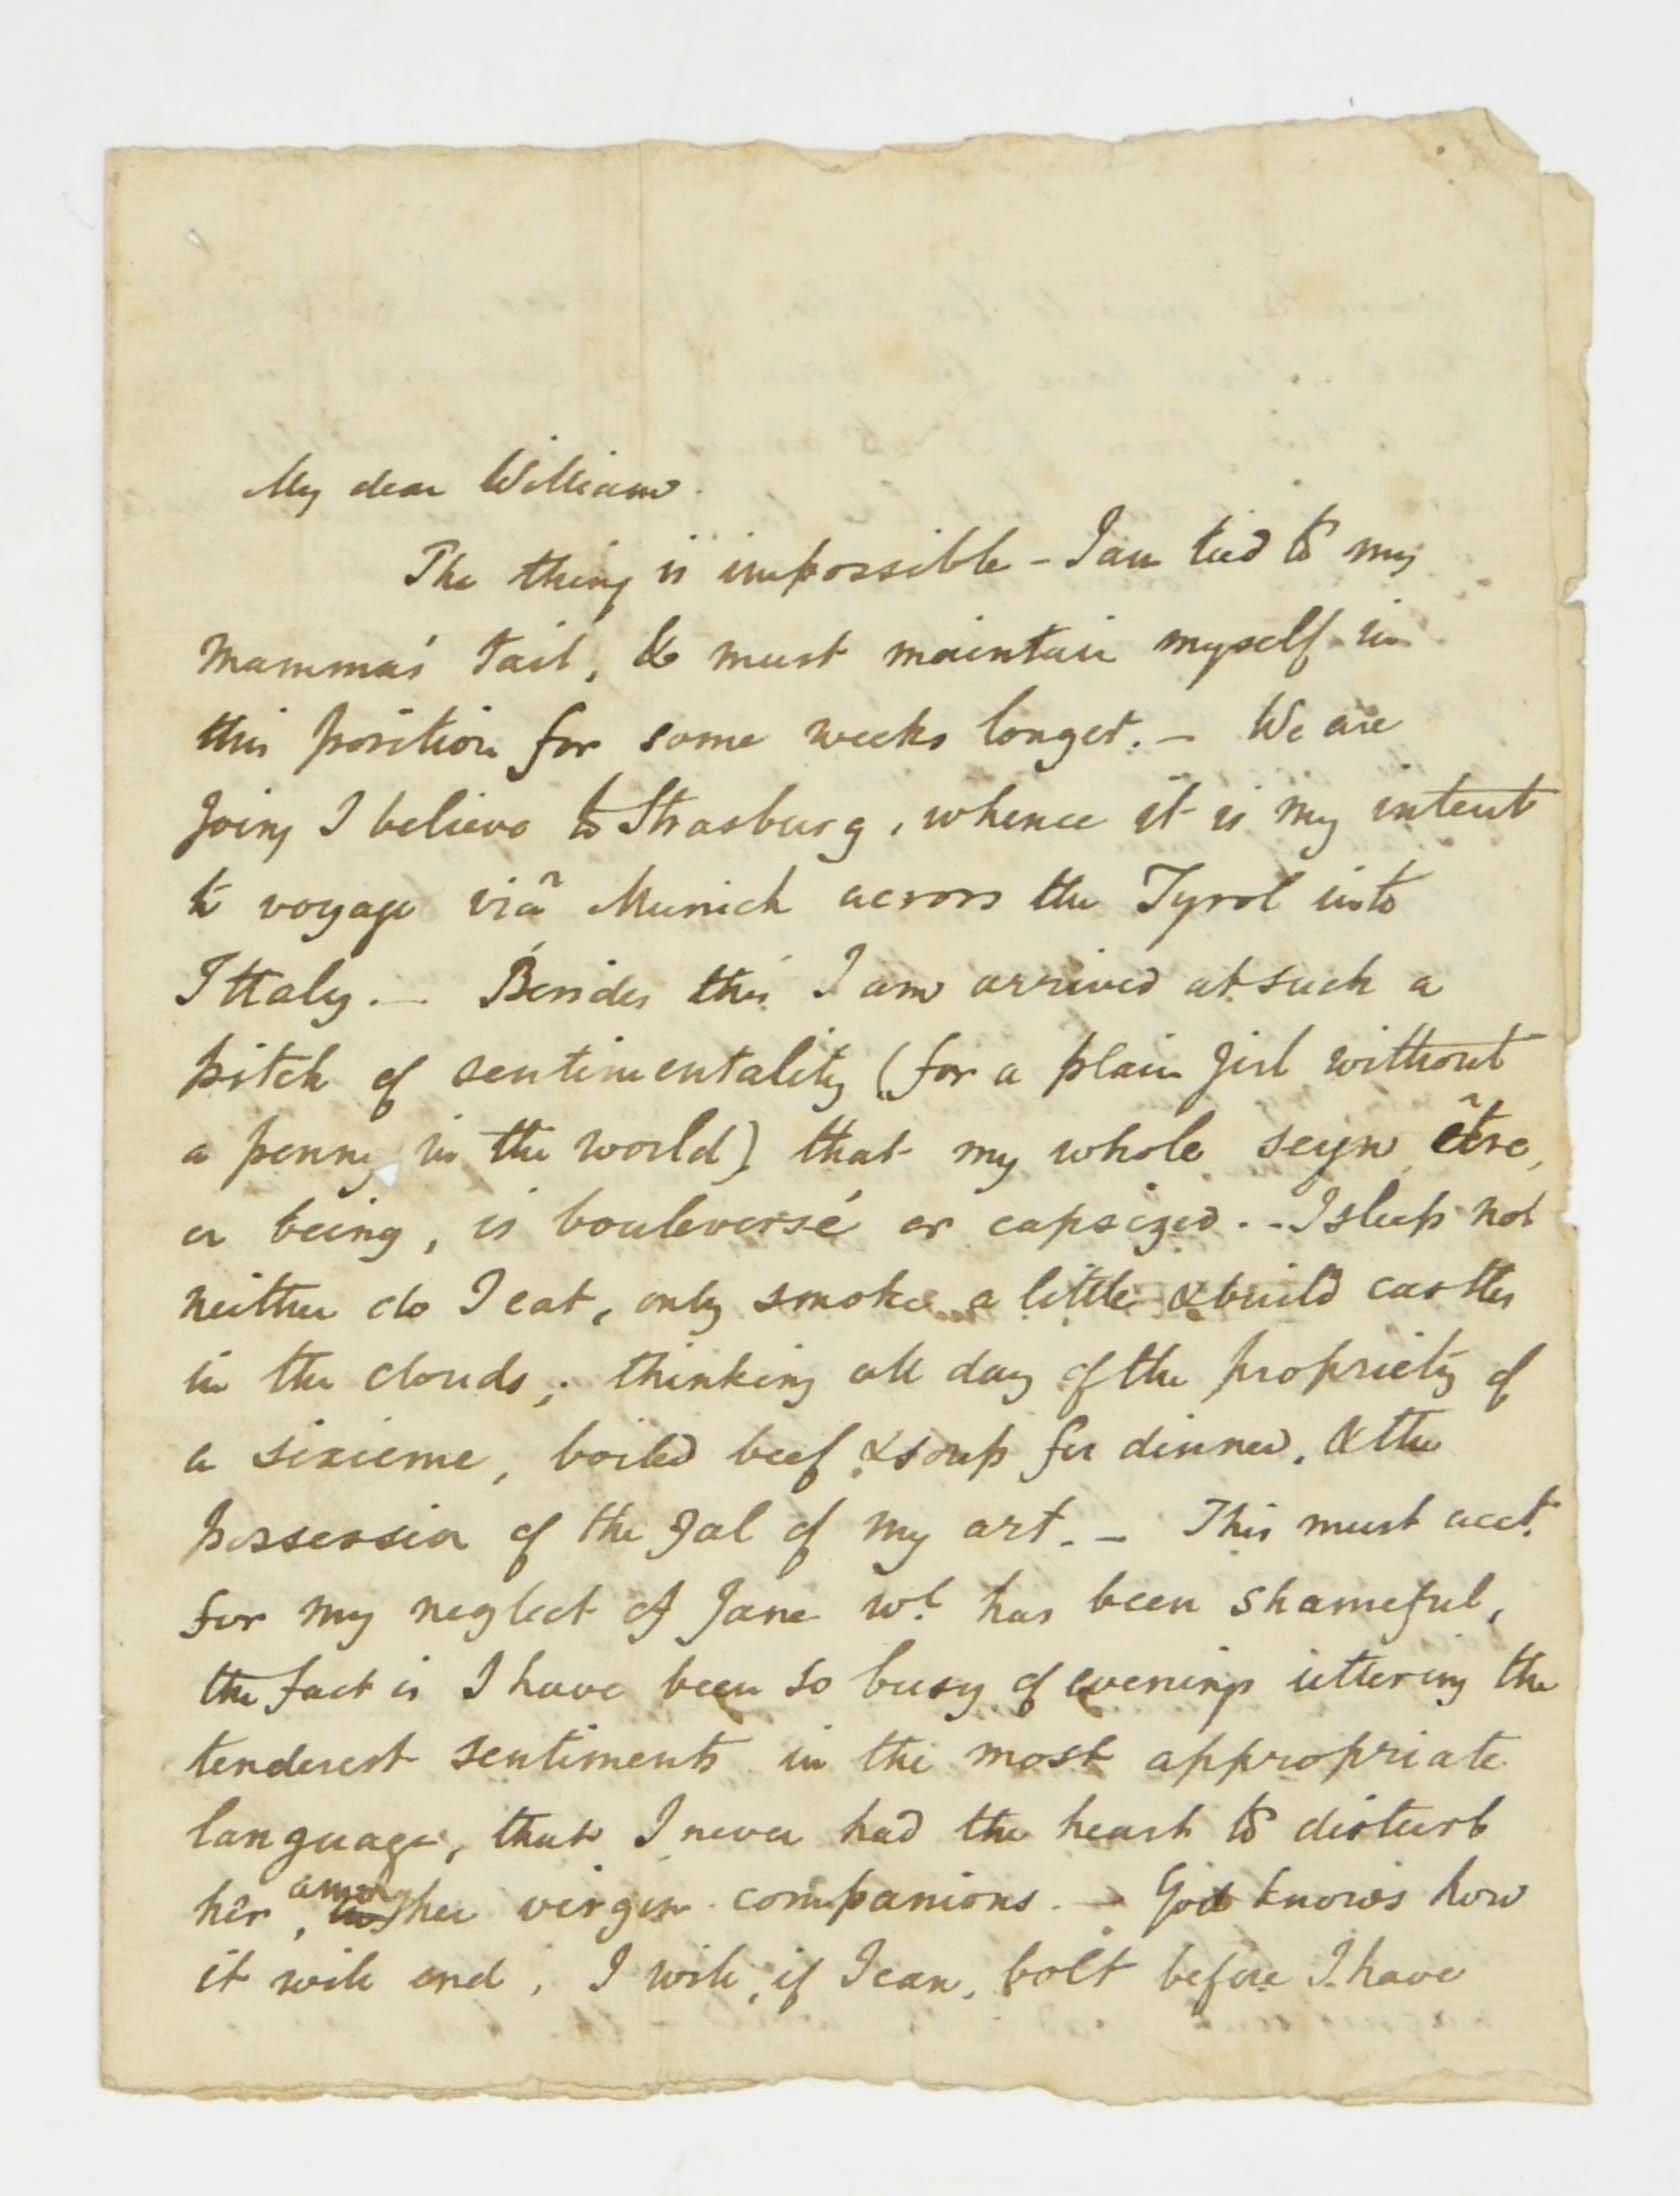 My dear William.
The thing is impossible - I am tied to my
Mamma's tail, & must maintain myself in
this position for some weeks longer. - We are
going I believe to Strasburg, whence it is my intent
to voyage viâ Munich across the Tyrol into
Ittaly. - Besides this I am arrived at such a
pitch of sentimentality (for a plain girl without
a penny in the world) that my whole seyn, être,
or being, is bouleversé or capsized. - I sleep not
neither do I eat, only smoke a little & build castles
in the clouds; thinking all day of the propriety of
a sixieme, boiled beef & soup for dinner, & the
possession of the gal of my art. - This must acct.
for my neglect of Jane wh. has been shameful,
the fact is I have been so busy of evenings uttering the
tenderest sentiments in the most appropriate
language, that I never had the heart to disturb
her, among her virgin companions. - God knows how
it will end, I will, if I can, bolt before I have